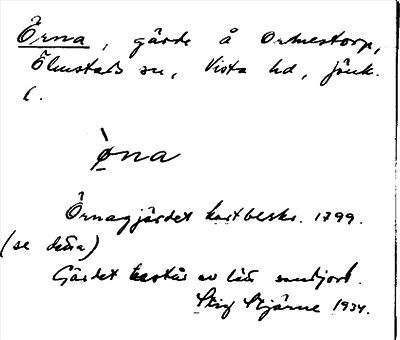 Örna, gärde å Ormestorp,
Ölmstads sn, Vista hd, Jönk.
l.
ø̀na
Örnagjärdet kartbeskr. 1799.
(se detta)
Gärdet består av lätt sandjord.
Stig Stjärne 1934.